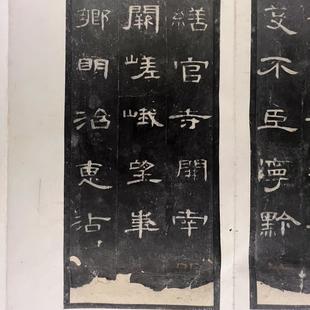 芟不臣寧黔
繕官寺開南
闕嵯峨望華
鄉明治惠沾